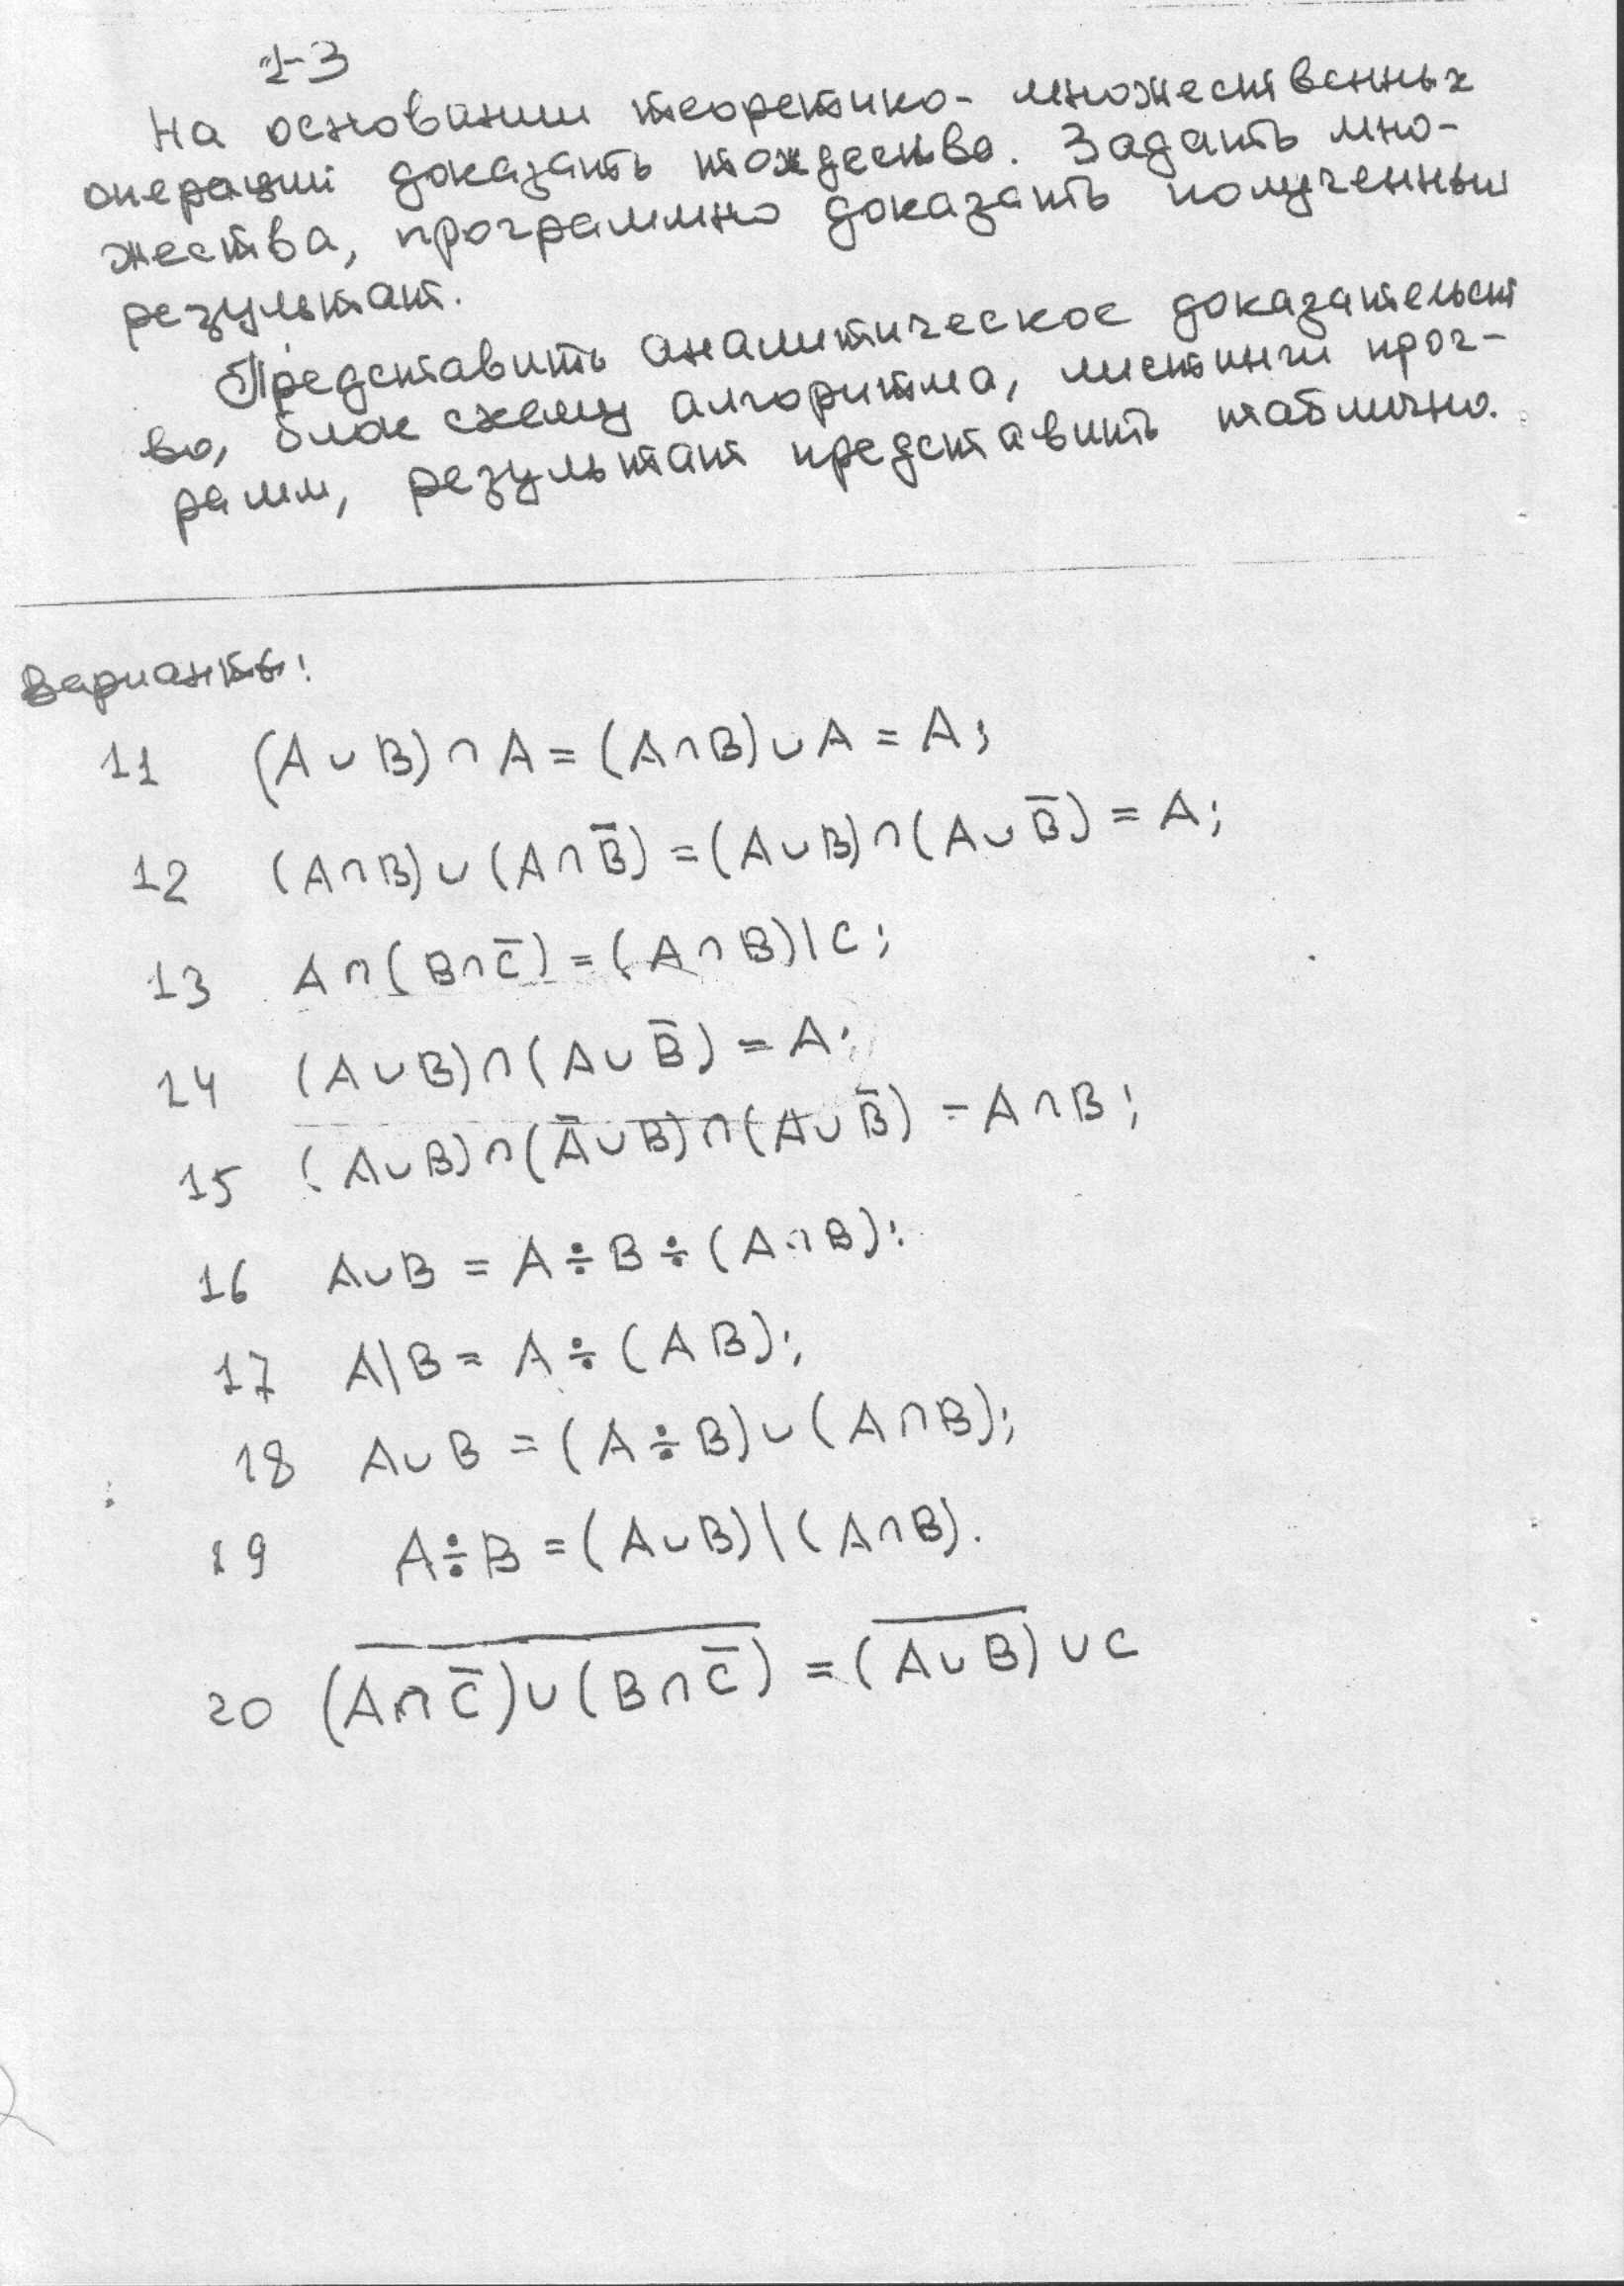 1-3
На основании теоретико- множественных
операций доказать тождество. Задать мно-
жества, программно доказать полученный
результат.
Представить аналитическое доказательст
во, блок схему алгоритма, листинги прог-
рамм, результат представить таблично.
Варианты:
11 (A ∪ B) ∩ A = (A ∩ B) ∪ A = A;
12 (A ∩ B) ∪ (A ∩ B̅) = (A ∪ B) ∩ (A ∪ B̅) = A;
13 A ∩ (B ∩ C̅) = (A ∩ B) | C;
14 (A ∪ B) ∩ (A ∪ B̅) = A;
15 (A ∪ B) ∩ (A̅ ∪ B) ∩ (A ∪ B̅) = A ∩ B;
16 A ∪ B = A ÷ B ÷ (A ∩ B);
17 A | B = A ÷ (A B);
18 A ∪ B = (A ÷ B) ∪ (A ∩ B);
19 A ÷ B = (A ∪ B) | (A ∩ B).
20 (A̅ ̅∩̅ ̅C̅̅)̅ ̅∪̅ ̅(̅B̅ ̅∩̅ ̅C̅̅) = (A̅ ̅∪̅ ̅B̅) ∪ C